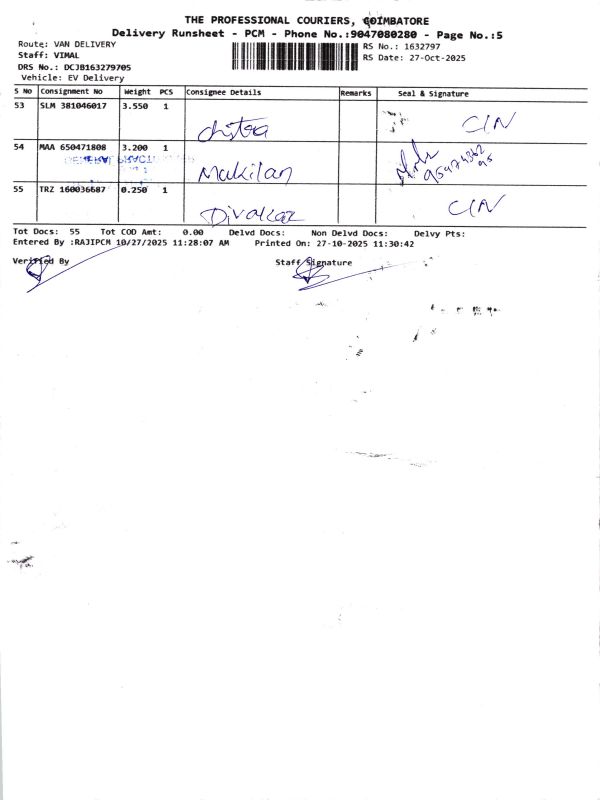 THE PROFESSIONAL COURIERS, COIMBATORE
Delivery Runsheet - PCM - Phone No.:9047080280 - Page No.:5
Route: VAN DELIVERY
Staff: VIMAL
DRS No.: DCJB163279705
Vehicle: EV Delivery
RS No.: 1632797
RS Date: 27-Oct-2025
S No Consignment No Weight PCS Consignee Details Remarks Seal & Signature
53 SLM 381046017 3.550 1
chitra C/N
54 MAA 650471808 3.200 1
GENERAL
Makilan
55 TRZ 160036687 0.250 1
Divakar C/N
Tot Docs: 55 Tot COD Amt: 0.00 Delvd Docs: Non Delvd Docs: Delvy Pts:
Entered By :RAJIPCM 10/27/2025 11:28:07 AM Printed On: 27-10-2025 11:30:42
Verified By Staff Signature